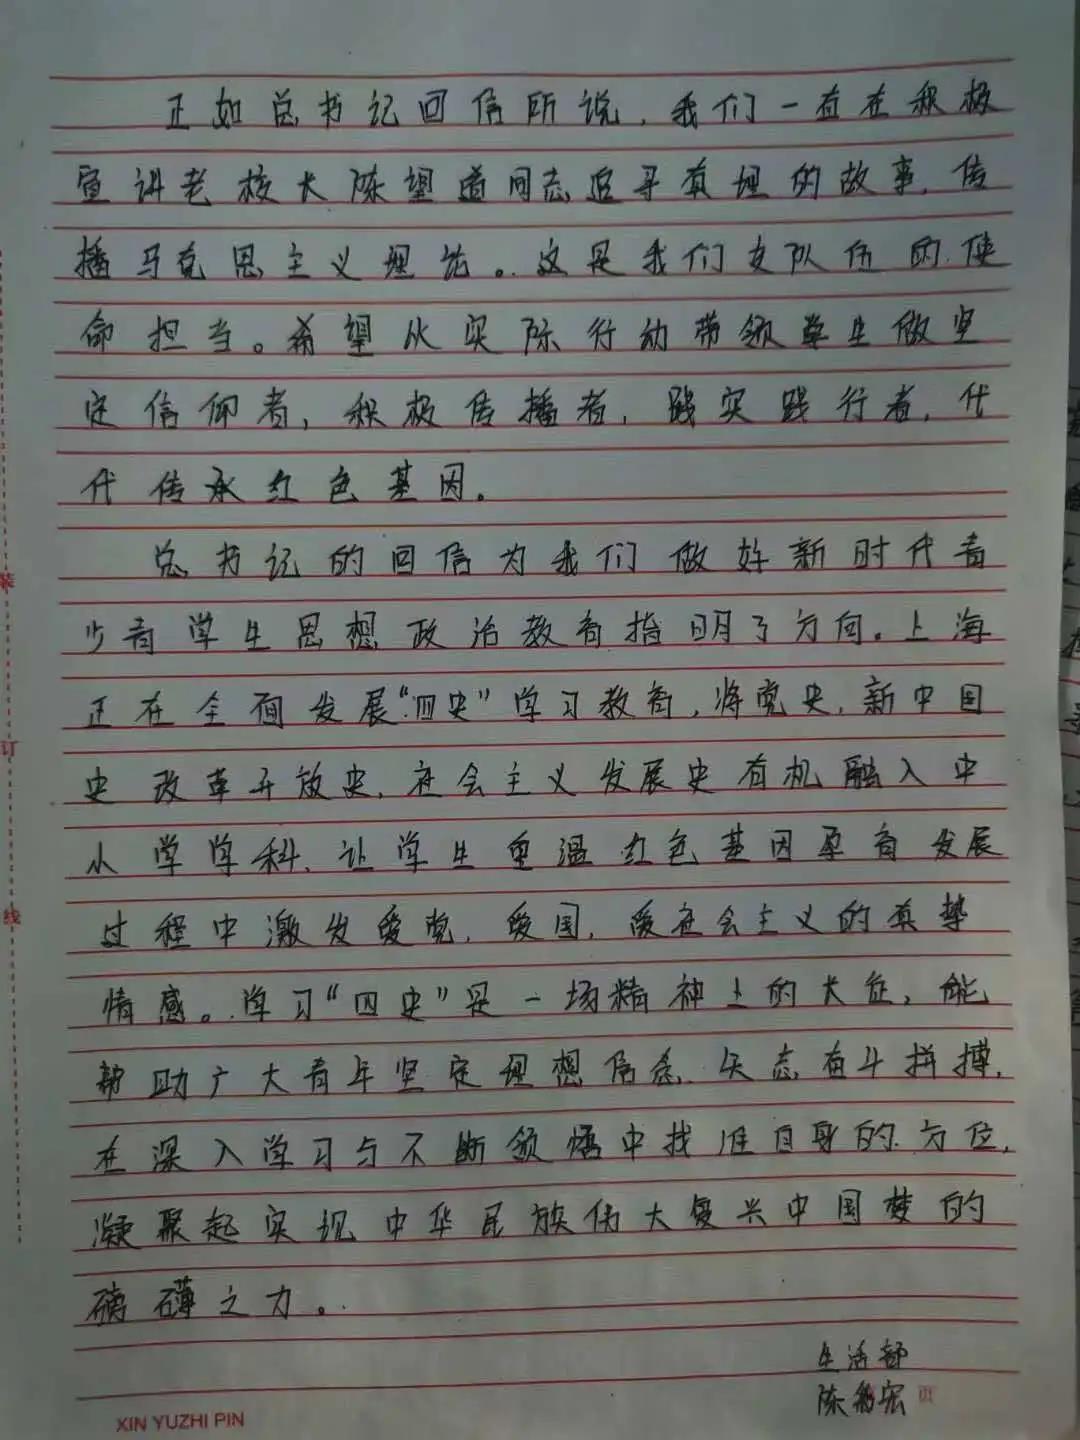 正如总书记回信所说，我们一直在积极
宣讲老校长陈望道同志追寻真理的故事，传
播马克思主义理论。这是我们支队伍的使
命担当。希望从实际行动带领学生做坚
定信仰者，积极传播者，践实践行者，代
代传承红色基因。
总书记的回信为我们做好新时代青
少青学生思想政治教育指明了方向。上海
正在全面发展“四史”学习教育，将党史，新中国
史改革开放史，社会主义发展史有机融入中
小学学科、让学生重温红色基因孕育发展
过程中激发爱党，爱国，爱社会主义的真挚
情感。学习“四史”是一场精神上的大征，能
帮助广大青年坚定理想信念，矢志奋斗拼搏，
在深入学习与不断领悟中找准自身的方位，
凝聚起实现中华民族伟大复兴中国梦的
磅礴之力。
生活部
陈宏
页
装
订
线
XIN YUZHI PIN